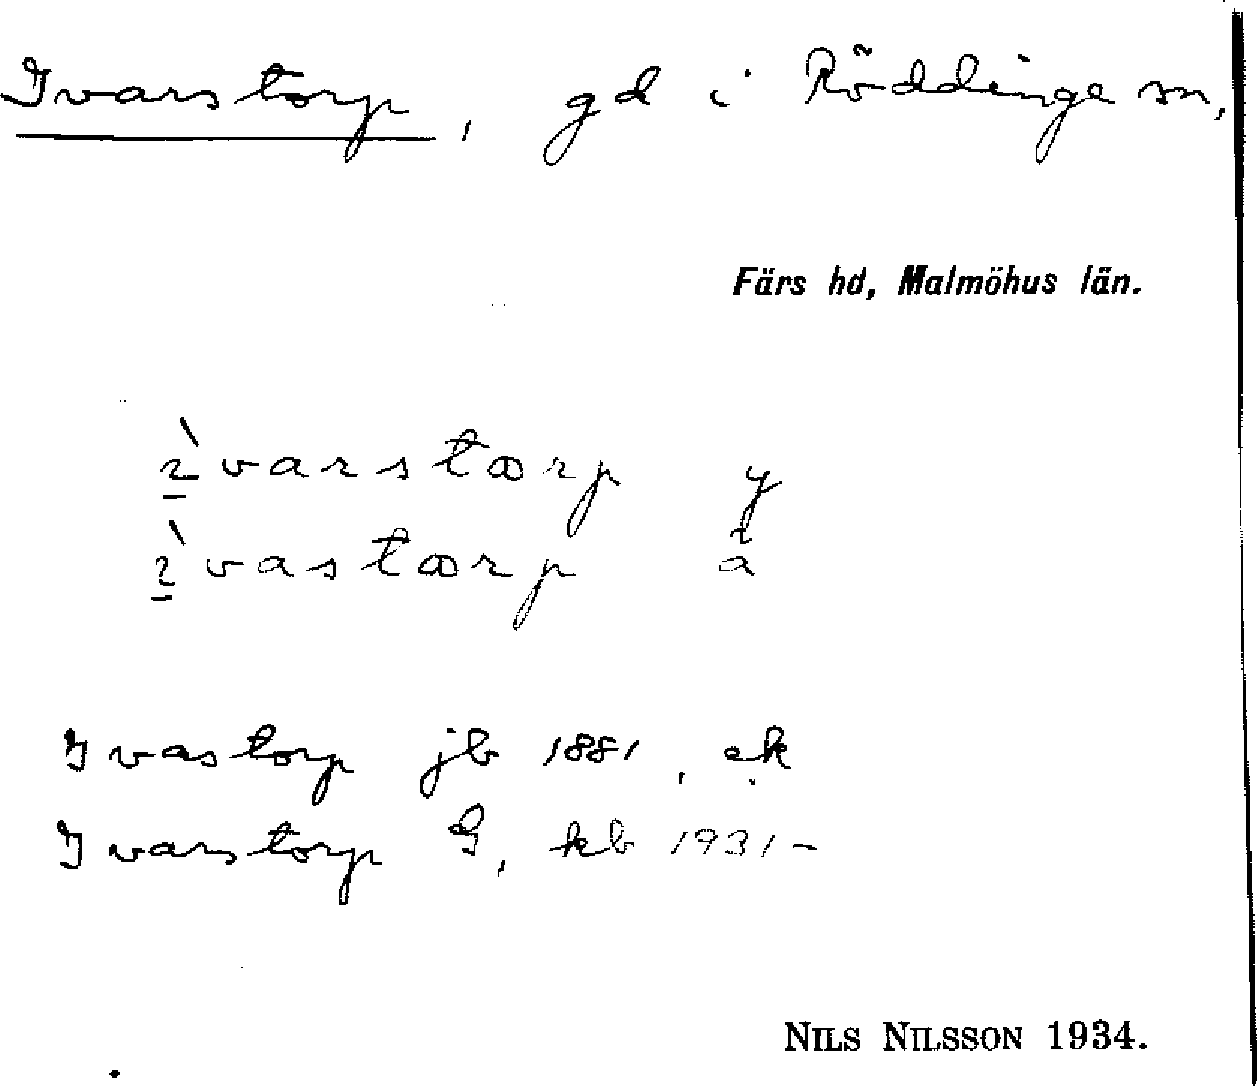 Ivarstorp, gd i Röddinge sn,
Färs hd, Malmöhus län.
ı̱̀varstɷrp y
ı̱̀vastɷrp å
Ivastorp jb 1881, ek
Ivarstorp G, kb 1931-
NILS NILSSON 1934.